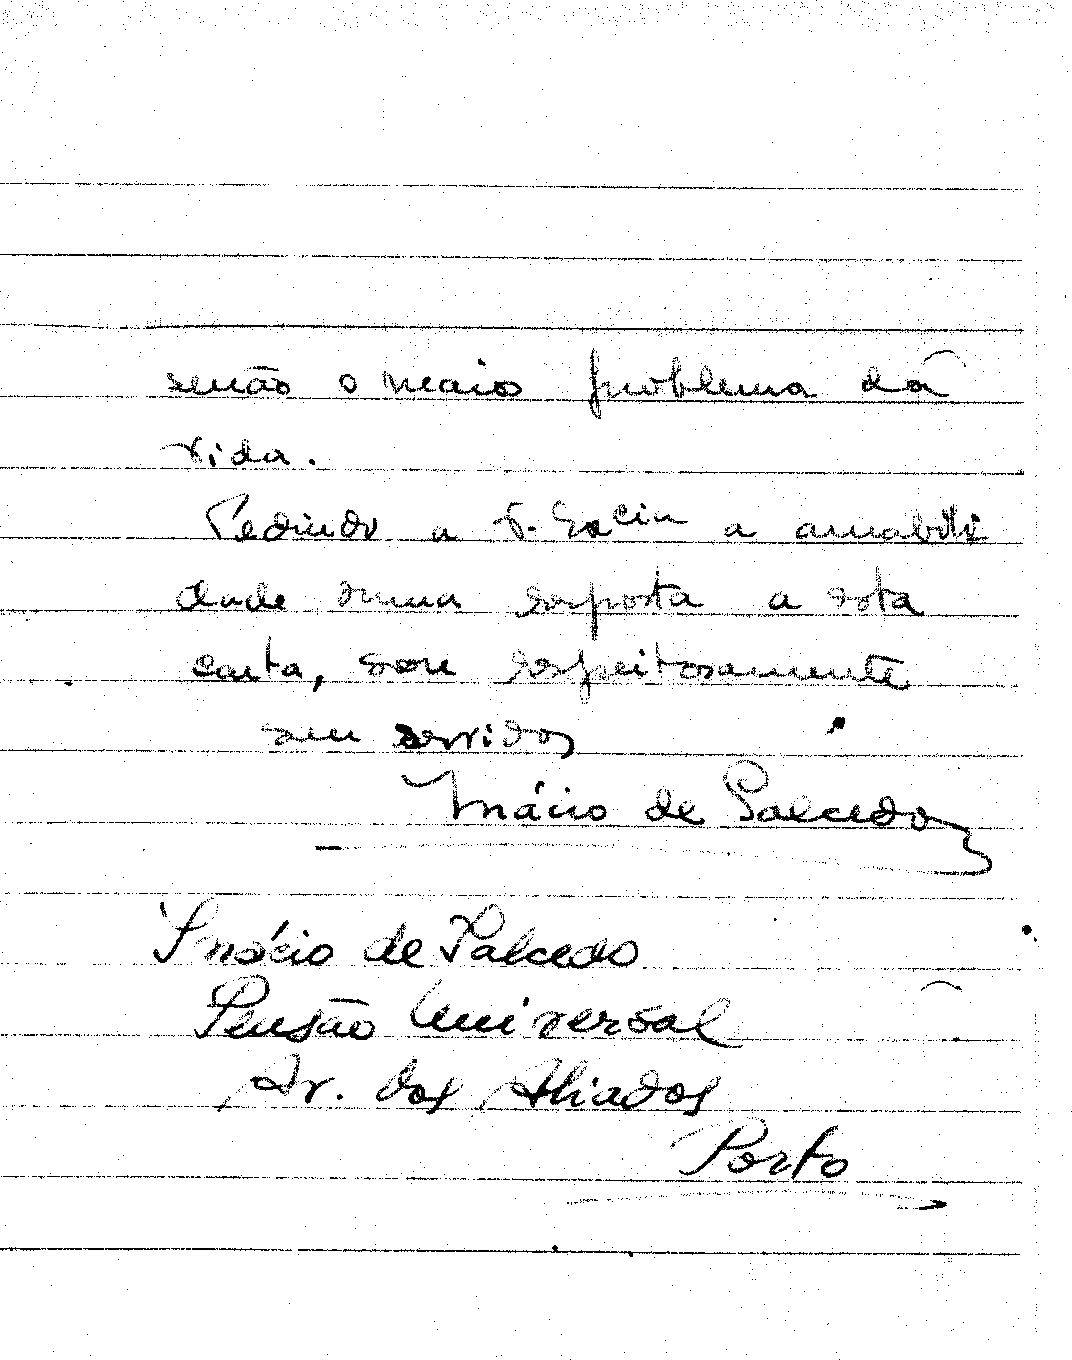 senão o maior problema da
vida.
Pedindo a V. Excia a amabili
dade duma resposta a esta
carta, sou respeitosamente
seu servidor
Inácio de Salcedo
Inácio de Salcedo
Pensão Universal
Av. dos Aliados
Porto